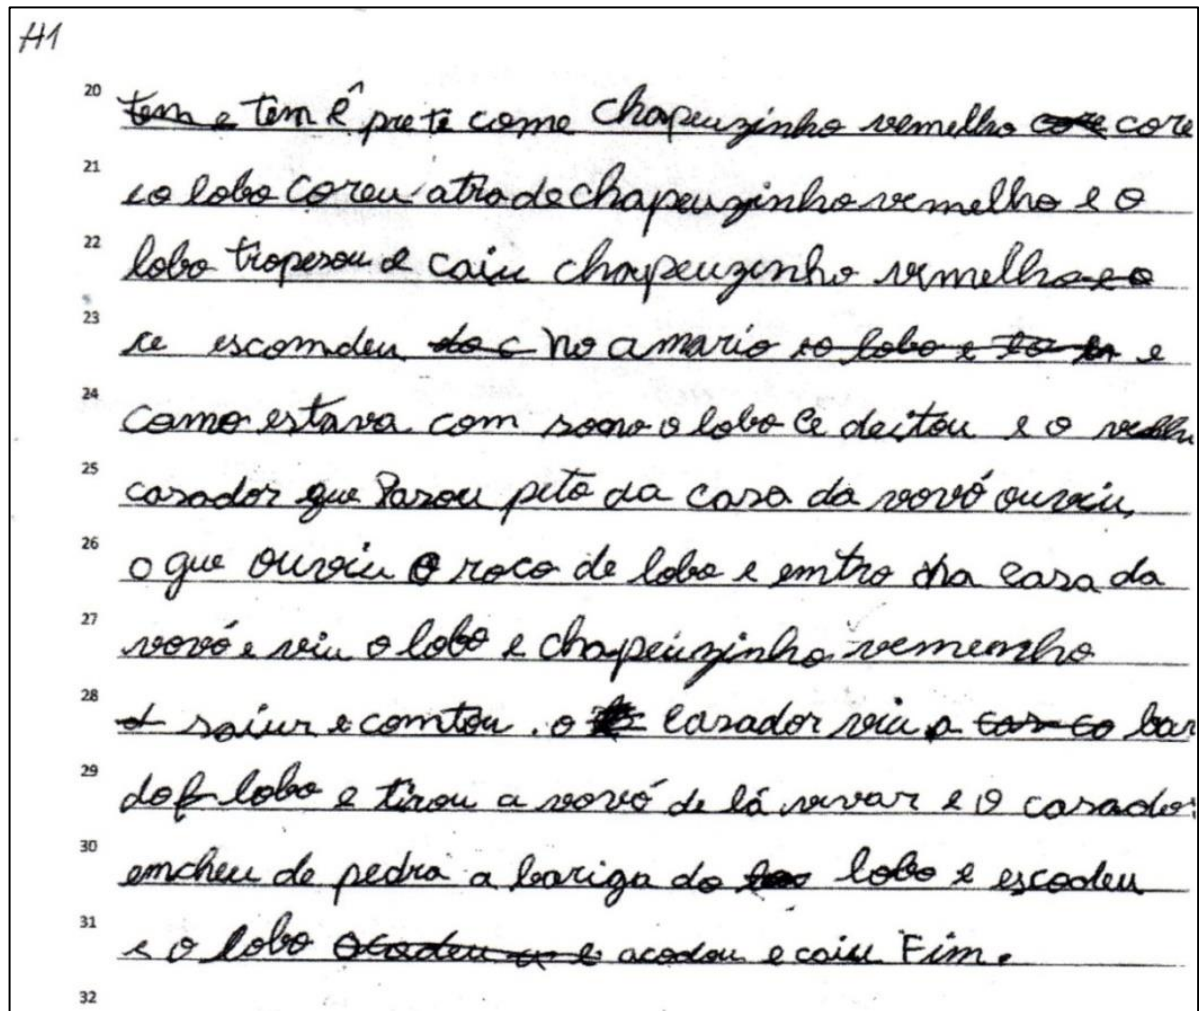 H1
20 tem e tem ê prete come chapeuzinho vemelho core core
21 eo lobo coreu atra de chapeuzinho vemelho e o
22 lobo tropesou e caiu chapeuzinho vemelho e o
23 ce escomdeu do c no amario eo lobo e e
24 como estava com sono o lobo ce deitou e o
25 casador que Pasou peto da casa da vovó ouviu
26 o que ouviu o roco de lobo e emtro na casa da
27 vovó e viu o lobo e chapeuzinho vememho
28 saiur e comtou . o casador viu a bar
29 do lobo e tirou a vovó de lá vivar e o casador
30 emcheu de pedra a bariga do lobo e escodeu
31 e o lobo acodou e caiu Fim.
32